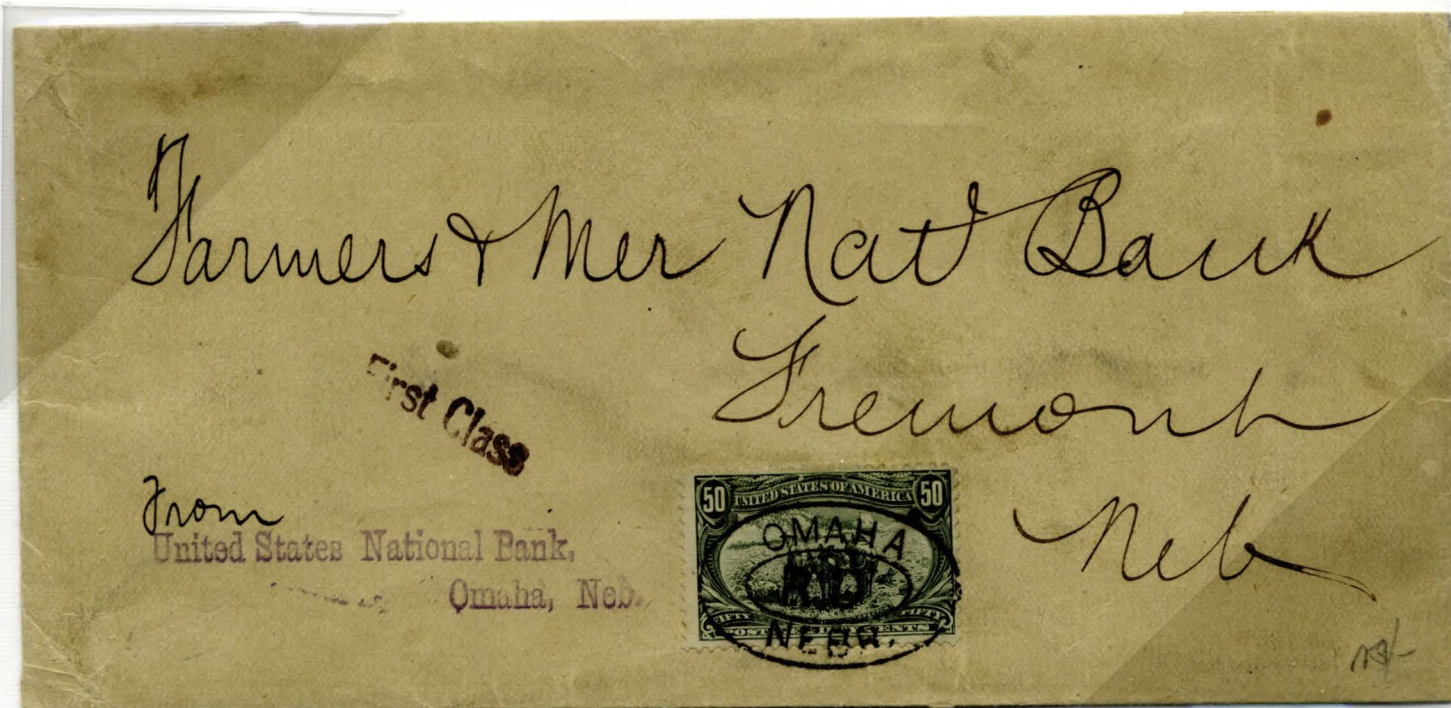 Farmers & Mer Nat Bank
Fremont
Neb
First Class
From
United States National Bank,
Omaha, Neb.
50 UNITED STATES OF AMERICA 50
OMAHA
NEBR.